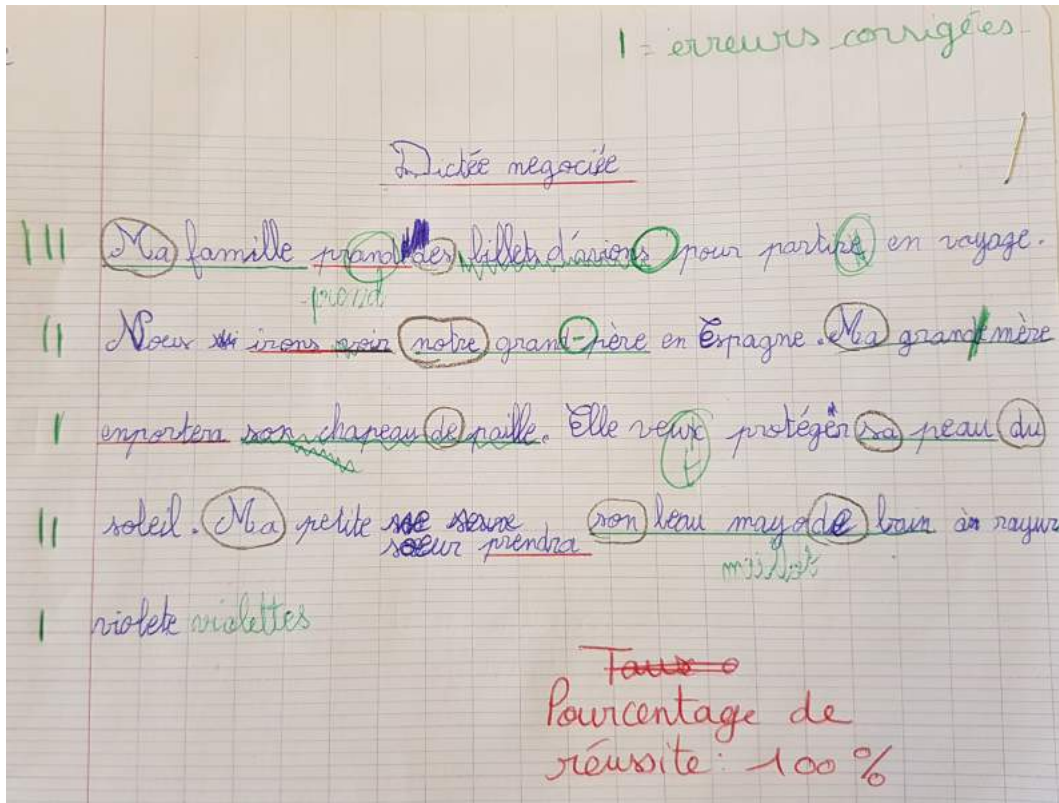 1 = erreurs corrigées
Dictée negociée
Ma famille prand des billets d'avions pour partire en voyage.
prend
Nous irons voir notre grand-père en Espagne. Ma grand mère
enportera son chapeau de paille. Elle veux protéger sa peau du
t
soleil. Ma petite soeur prendra son beau mayo de bain à rayur
maillot
violete violettes
Taux
Pourcentage de
réussite: 100%